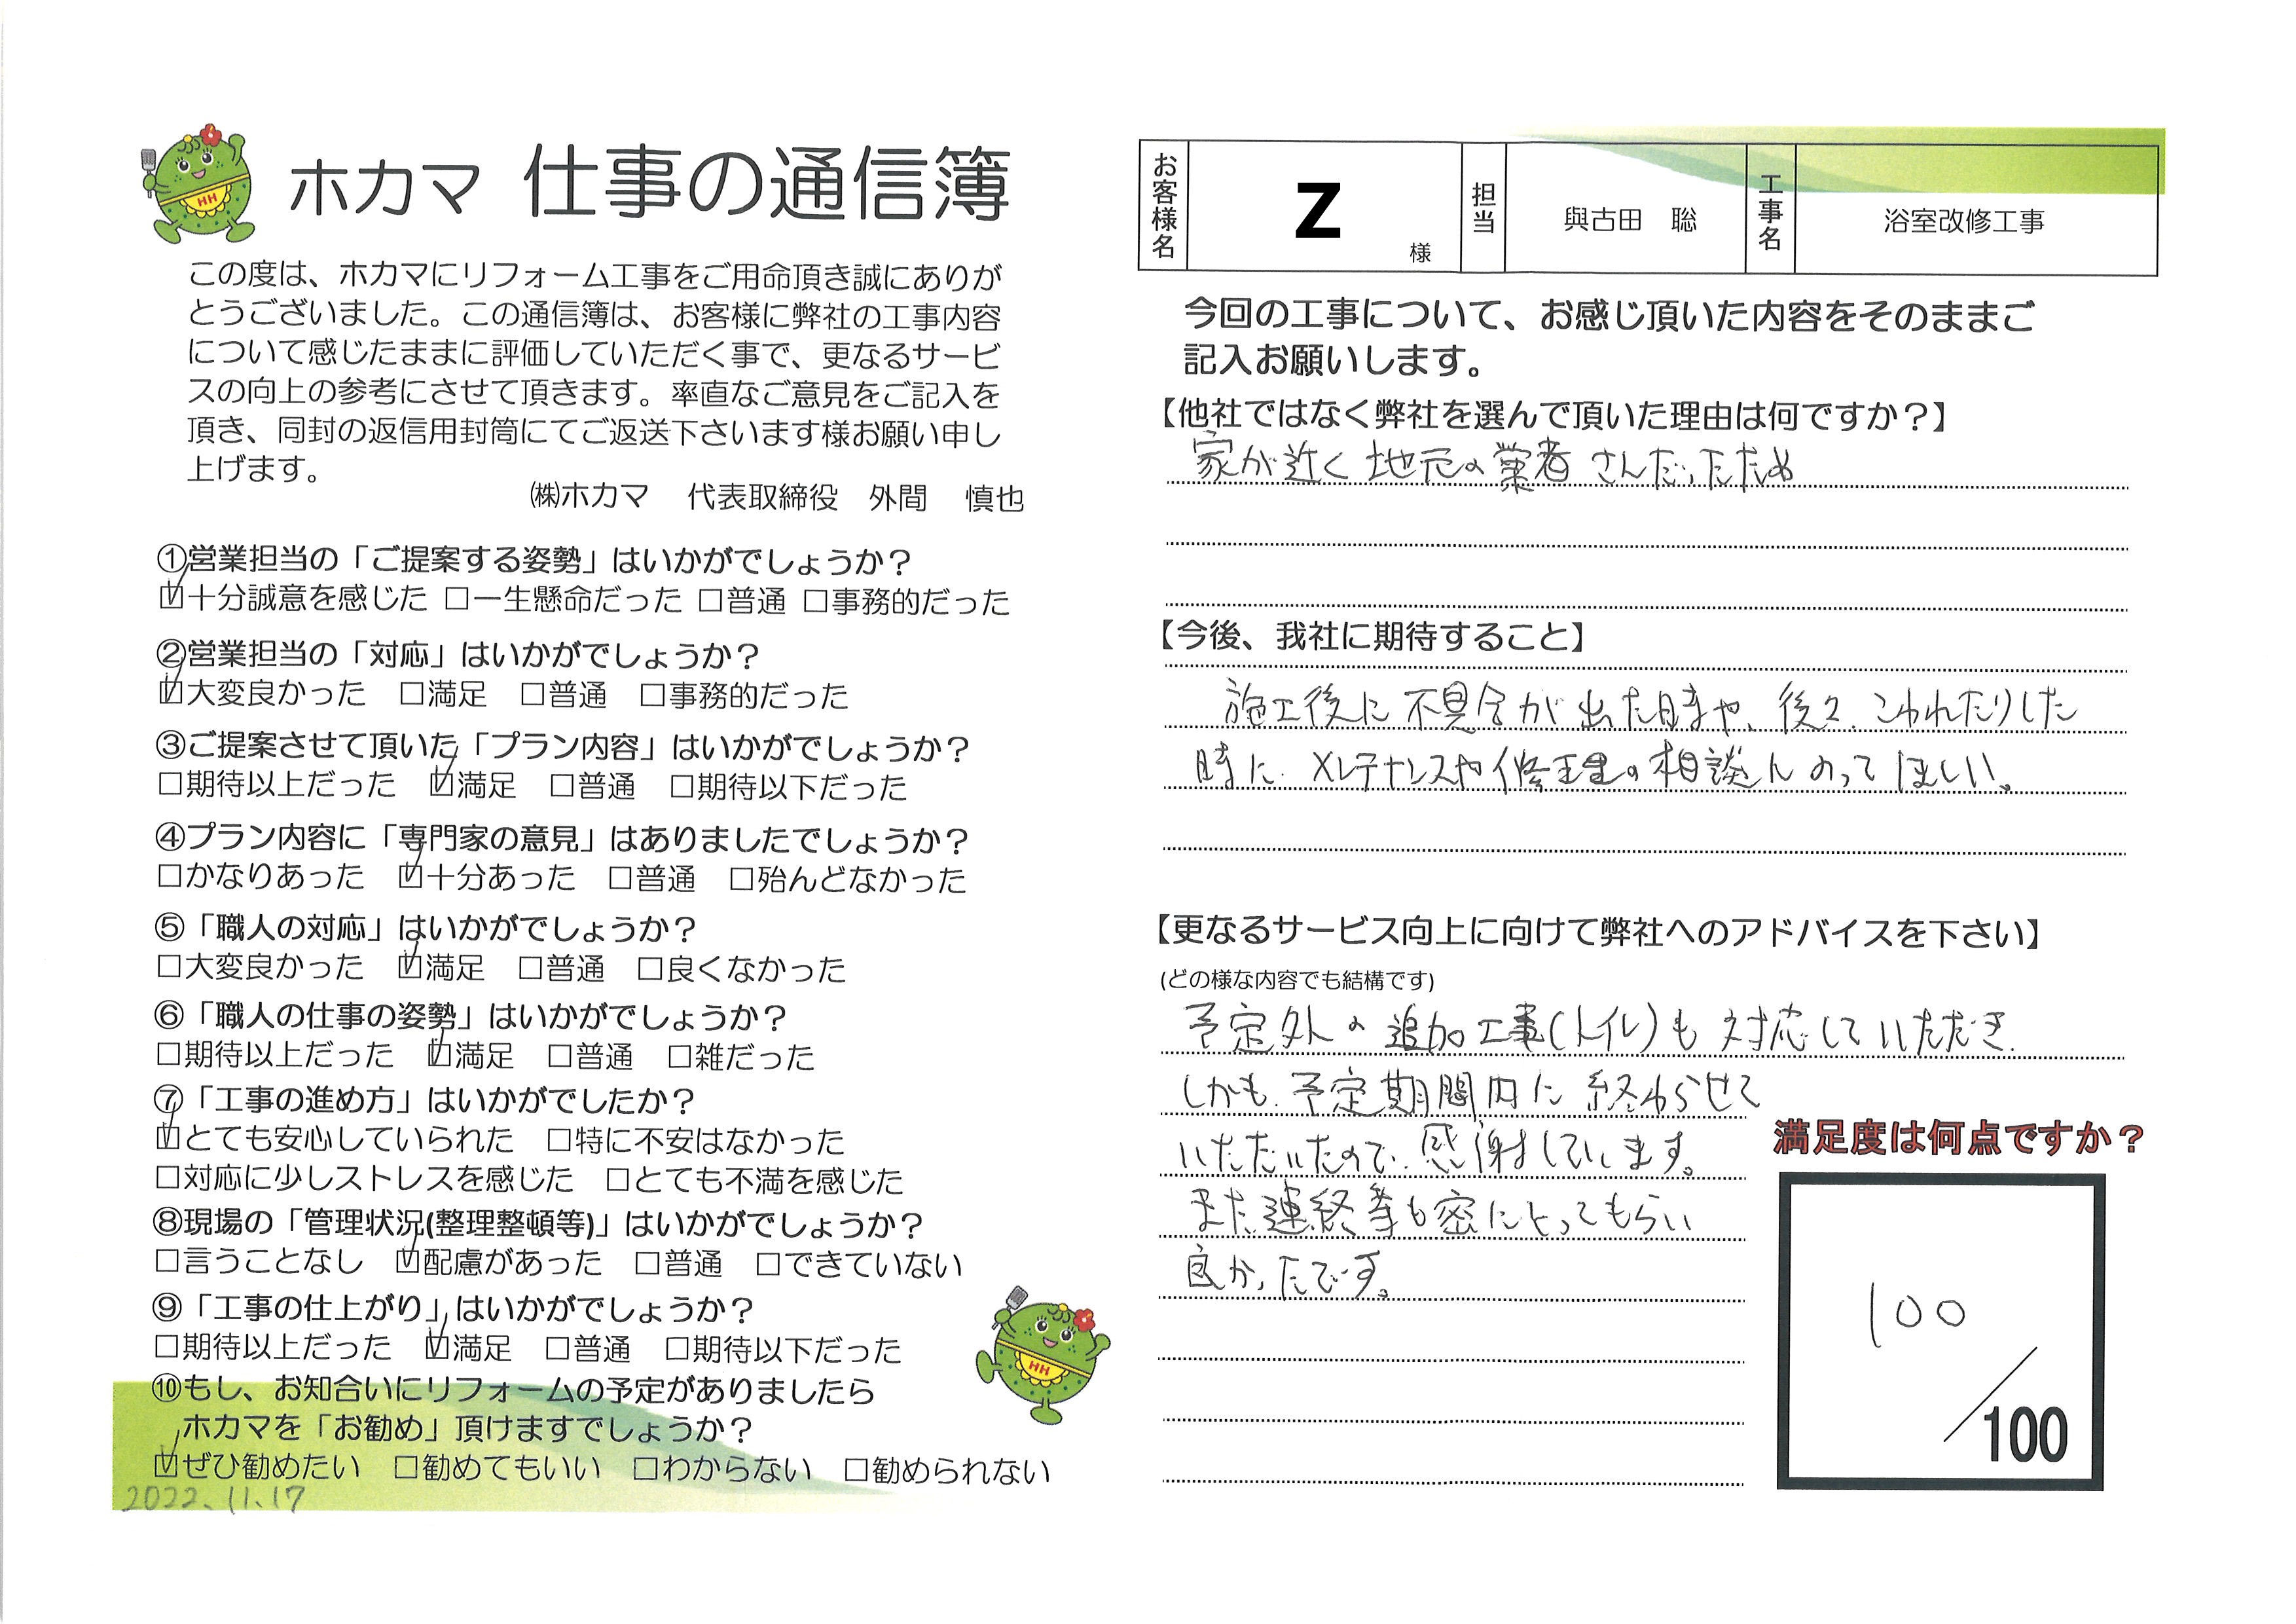 ホカマ 仕事の通信簿
この度は、ホカマにリフォーム工事をご用命頂き誠にありが
とうございました。この通信簿は、お客様に弊社の工事内容
について感じたままに評価していただく事で、更なるサービ
スの向上の参考にさせて頂きます。率直なご意見をご記入を
頂き、同封の返信用封筒にてご返送下さいます様お願い申し
上げます。
㈱ホカマ 代表取締役 外間 慎也
①営業担当の「ご提案する姿勢」はいかがでしょうか？
☑十分誠意を感じた □一生懸命だった □普通 □事務的だった
②営業担当の「対応」はいかがでしょうか？
☑大変良かった □満足 □普通 □事務的だった
③ご提案させて頂いた「プラン内容」はいかがでしょうか？
□期待以上だった ☑満足 □普通 □期待以下だった
④プラン内容に「専門家の意見」はありましたでしょうか？
□かなりあった ☑十分あった □普通 □殆んどなかった
⑤「職人の対応」はいかがでしょうか？
□大変良かった ☑満足 □普通 □良くなかった
⑥「職人の仕事の姿勢」はいかがでしょうか？
□期待以上だった ☑満足 □普通 □雑だった
⑦「工事の進め方」はいかがでしたか？
☑とても安心していられた □特に不安はなかった
□対応に少しストレスを感じた □とても不満を感じた
⑧現場の「管理状況(整理整頓等)」はいかがでしょうか？
□言うことなし ☑配慮があった □普通 □できていない
⑨「工事の仕上がり」はいかがでしょうか？
□期待以上だった ☑満足 □普通 □期待以下だった
⑩もし、お知合いにリフォームの予定がありましたら
ホカマを「お勧め」頂けますでしょうか？
☑ぜひ勧めたい □勧めてもいい □わからない □勧められない
2022.11.17
HH
HH
お客様名 Z 様 担当 與古田 聡 工事名 浴室改修工事
今回の工事について、お感じ頂いた内容をそのままご
記入お願いします。
【他社ではなく弊社を選んで頂いた理由は何ですか？】
家が近く 地元の業者さんだったため
【今後、我社に期待すること】
施工後に不具合が出た時や、後々、こわれたりした
時に、メンテナンスや修理の相談にのってほしい。
【更なるサービス向上に向けて弊社へのアドバイスを下さい】
(どの様な内容でも結構です)
予定外の追加工事(トイレ)も対応していただき、
しかも、予定期間内に終わらせて
いただいたので、感謝しています。
また連絡等も密にとってもらい
良かったです。
満足度は何点ですか？
100
/100